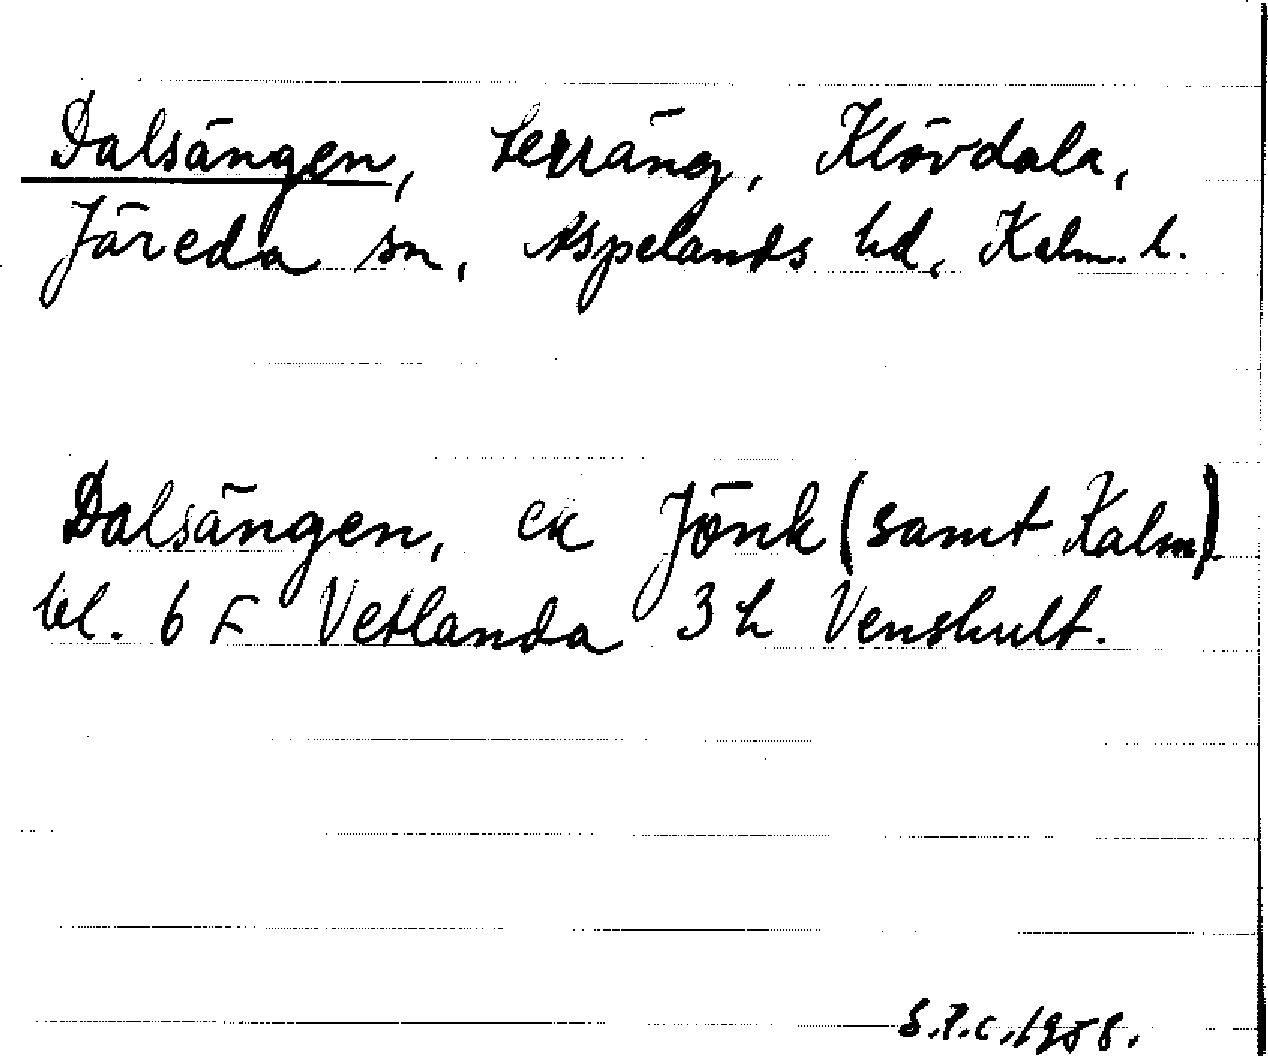 Dalsängen, terräng, Klövdala,
Järeda sn, Aspelands hd, Kalm. l.
Dalsängen, ek Jönk (samt Kalm)
bl. 6 F Vetlanda 3 h Venshult.
S.P.C. 1958.